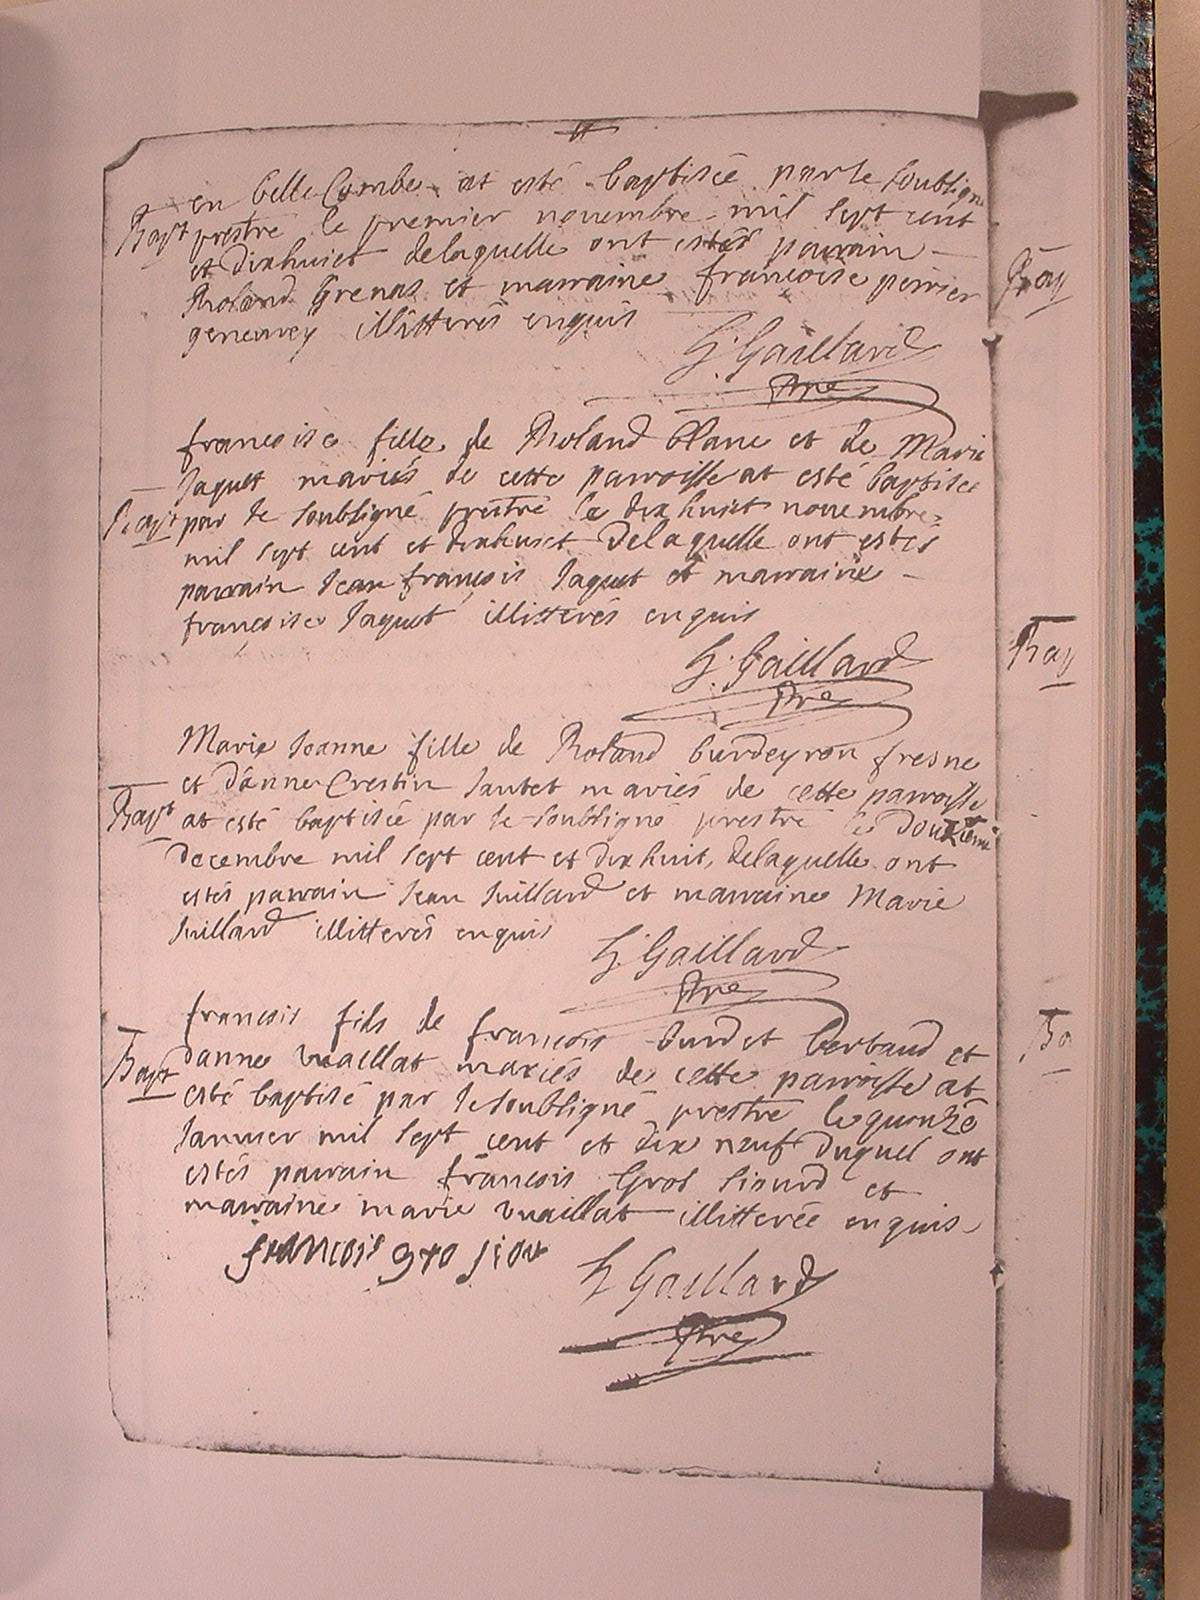 en belle Combe at esté baptisée par le soubligné
Bapt prestre le premier novembre mil sept cent
et dixhuict delaquelle ont estés parrain
Roland Grenas et marraine francoise perrier
genevrey illitterés enquis
G. Gaillard
ptre
francoise fille de Roland blanc et de Marie
Jaquet mariés de cette parroisse at esté baptisée
Bapt par le soubligné prestre le dixhuict novembre
mil sept cent et dixhuict delaquelle ont estés
parrain Jean françois Jaquet et marraine
françoise Jaquet illitterés enquis
G. Gaillard
ptre
Marie Jeanne fille de Roland burdeyron fresne
et d'anne Crestin Jantet mariés de cette parroisse
Bapt at esté baptisée par le soubligné prestre le douzieme
decembre mil sept cent et dixhuit, delaquelle ont
estés parrain Jean Juillard et marraine Marie
Juillard illitterés enquis
G. Gaillard
ptre
françois fils de françois burdet berbaud et
Bapt danne vuaillat mariés de cette parroisse at
esté baptisé par le soubligné prestre le quinzé
Janvier mil sept cent et dix neuf duquel ont
estés parrain françois Gros Sisurd et
marraine marie vuaillat illitterée enquis
francois gro
G Gaillard
ptre
Bap
Bap
Ba